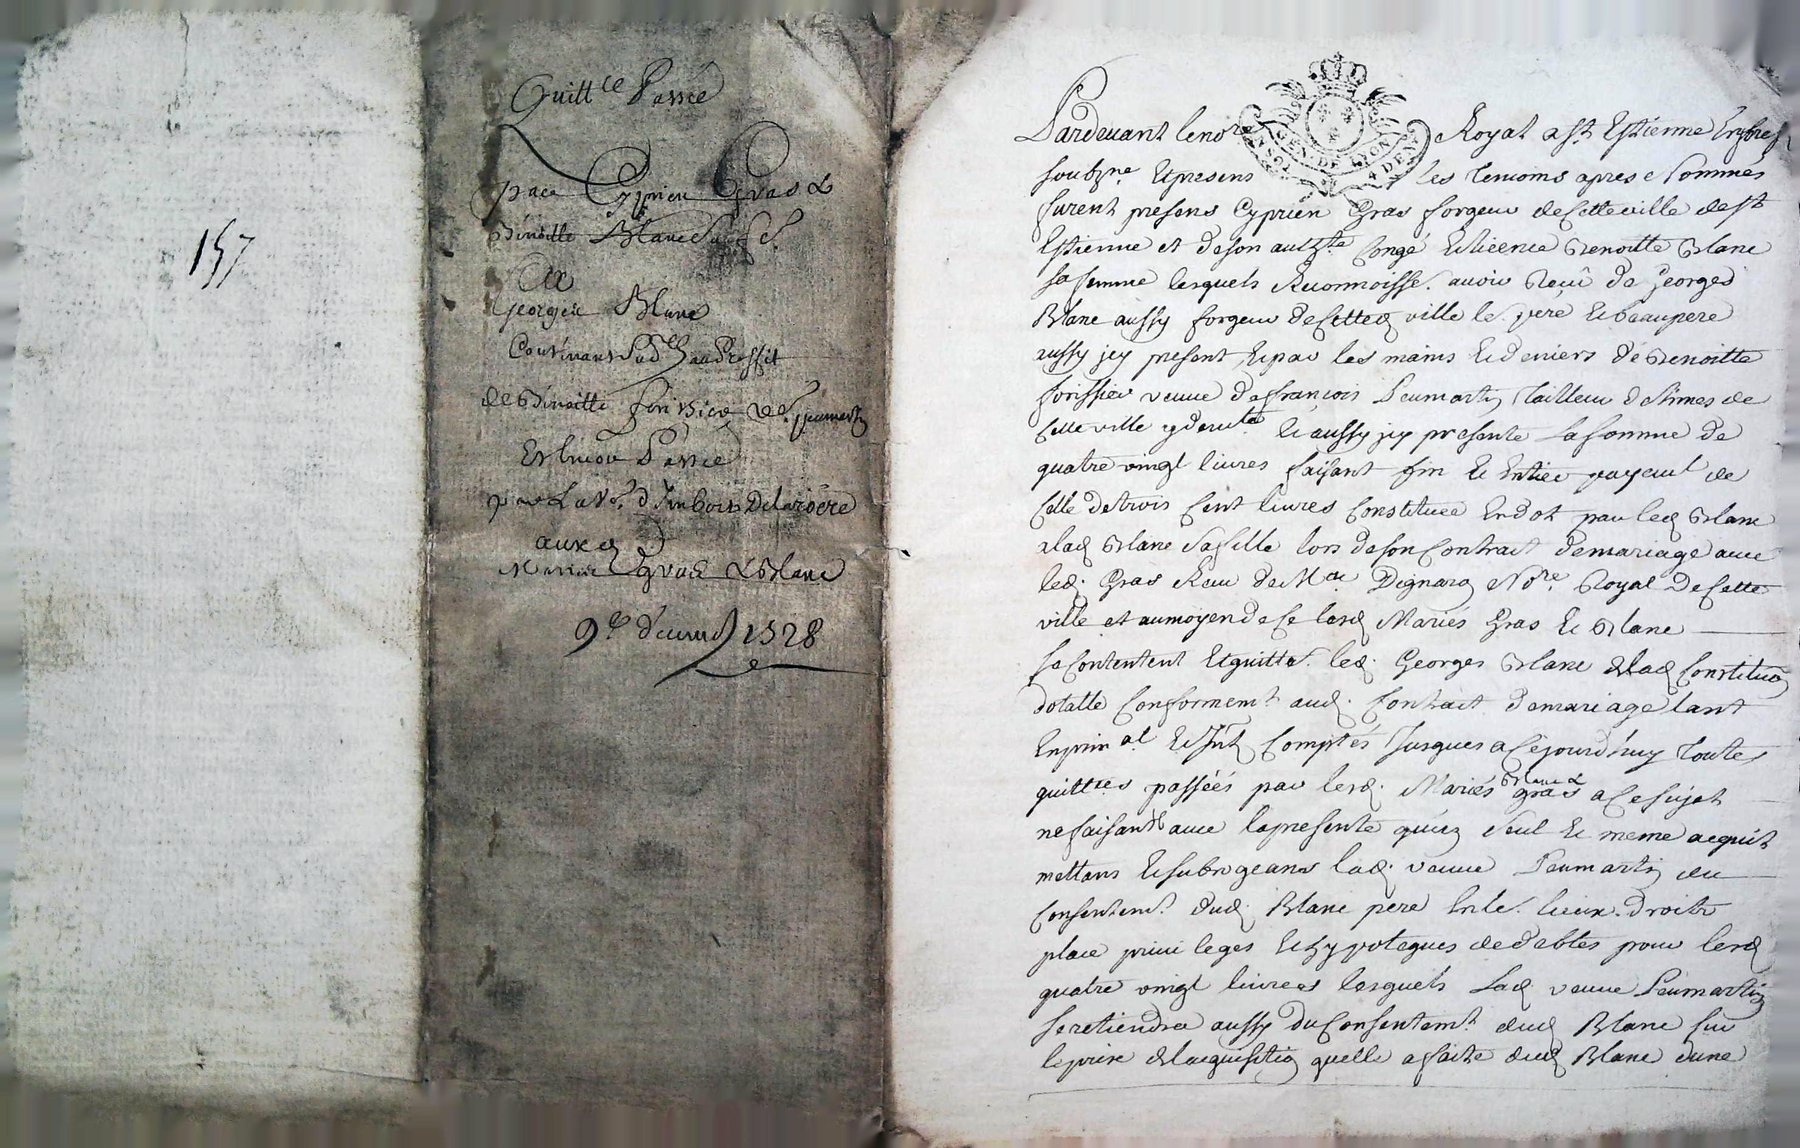 157
Quitt.ce Passée
par Cyprien Gras &
Benoitte Blanc sa fe.
A
Georges Blanc
Contenant Sub.on au Proffit
de Benoitte forissier ve. peumartin
Et
par La Ve.
auxd
Mariés gras & Blanc
9e 1728
Pardevant le no.re Royal a St Estienne En forest
soubz.ne Et presens les temoins apres Nommés
furent presens Cyprien Gras forgeur de Cette ville de st
Estienne et de son auth.te Congé Et licence Benoitte Blanc
sa femme lesquels Reconnoisse. avoir Receu de Georges
Blanc aussy forgeur de Cetted ville le. pere Et beaupere
aussy jcy present Et par les mains Et deniers de Benoitte
forissier veuve de francois Peumartin Tailleur de limes de
Cette ville y demte. Et aussy jcy presente La somme de
quatre vingt livres faisant fin Et Entier payemt de
Celle de trois Cent livres Constituée En dot par led Blanc
a lad Blanc sa fille lors de son Contrait de mariage avec
led. Gras Receu de Me Dignaron No.re Royal De Cette
ville et au moyen de Ce lesd Mariés Gras Et Blanc
se Contentent Et quitte. led. Georges Blanc de lad Constituon
dotalle Conformem.t aud. Contrait de mariage tant
En prin.al Et Intz Comptés Jusques a Cejourd'huy Toutes
quitt.ces passéés par lesd. Mariés Blanc & gras a Ce sujet
ne faisant avec la presente qu'un seul Et meme acquit
mettans Et subrogeans lad. veuve Peumartin du
Consentemt. dud. Blanc pere En le. lieux. droits
place privileges Et hypoteques de debtes pour lesd
quatre vingt livres lesquels Lad veuve Peumartin
se retiendra aussy du Consentemt. dud Blanc sur
le prix de lacquisition quelle a faite dud Blanc dune